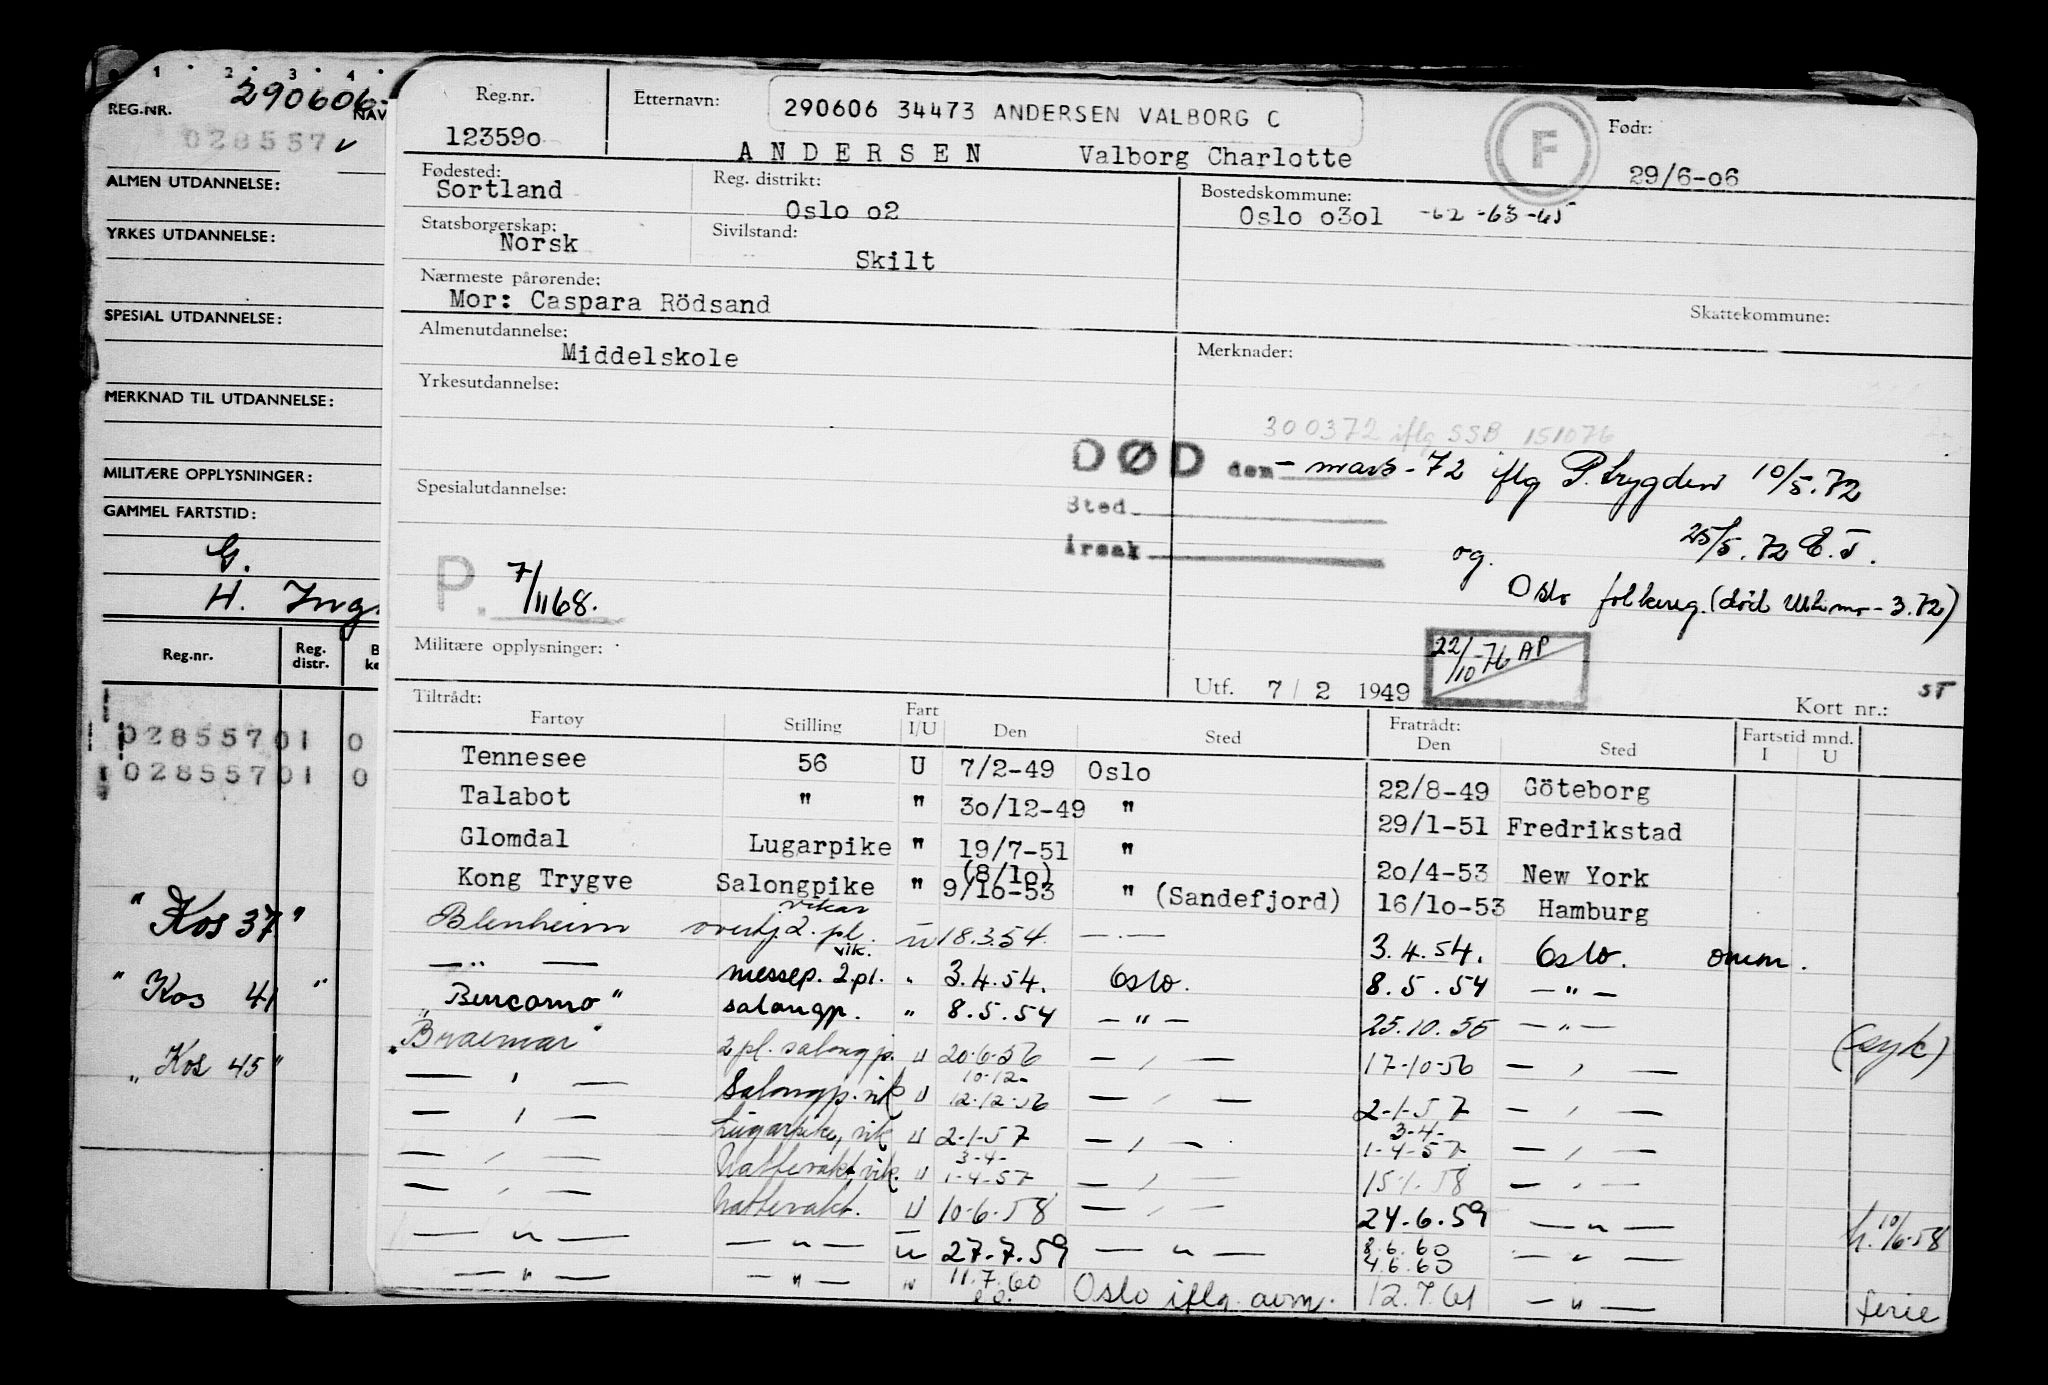 1 2 3 4
REG.NR. 290606-
NAV
028557 v
ALMEN UTDANNELSE:
YRKES UTDANNELSE:
SPESIAL UTDANNELSE:
MERKNAD TIL UTDANNELSE:
MILITÆRE OPPLYSNINGER:
GAMMEL FARTSTID:
G.
H. Ing.
Reg.nr. Reg. distr. B ke
02855701 0
02855701 0
"Kos 37"
"Kos 41"
"Kos 45"
Reg.nr. 12359o
Etternavn: 290606 34473 ANDERSEN VALBORG C
ANDERSEN Valborg Charlotte
F
Født: 29/6-o6
Fødested: Sortland
Reg. distrikt: Oslo o2
Bostedskommune: Oslo o3o1 -62 -63 -65
Statsborgerskap: Norsk
Sivilstand: Skilt
Nærmeste pårørende: Mor: Caspara Rödsand
Skattekommune:
Almenutdannelse: Middelskole
Merknader:
Yrkesutdannelse:
300372 iflg SSB 151076
DØD den - mars -72 iflg P.trygden 10/5.72
Spesialutdannelse:
Sted
Årsak
og. 25/5.72 E.T.
P. 7/1168.
Oslo folkereg. (død Ultimo - 3.72)
Militære opplysninger:
22/10-76 AP
Utf. 7 / 2 1949
Kort nr.: ST
Tiltrådt: Fratrådt:
Fartøy Stilling Fart I/U Den Sted Den Sted Fartstid mnd. I U
Tennesee 56 U 7/2-49 Oslo 22/8-49 Göteborg
Talabot " " 3o/12-49 " 29/1-51 Fredrikstad
Glomdal Lugarpike " 19/7-51 " 2o/4-53 New York
Kong Trygve Salongpike " (8/1o) 9/1o-53 " (Sandefjord) 16/1o-53 Hamburg
Blenheim overkj 2. pl. vikar u 18.3.54. — . — 3.4.54. Oslo. omm.
— " — messep. 2.pl. vik. " 3.4.54. Oslo. 8.5.54 — " —
"Bencomo" salongp. " 8.5.54 — " — 25.10.55 — " —
"Braemar" 2 pl. salongp. U 20-6-56 — " — 17-10-56 — " — (syk)
— " — Salongp. vik U 10-12- 12-12-56 — " — 2-1-57 — " —
— " — Lugarpike, vik U 2-1-57 — " — 3-4- 1-4-57 — " —
— " — Nattevakt, vik. U 3-4- 1-4-57 — " — 15-1-58 — " —
— " — Nattevakt. U 10-6-58 — " — 24.6.59 — " — h. 10/6-58
— " — — " — u 27.7.59 — " — 8.6.60 4.6.60 — " —
— " — — " — " 11.7.60 Oslo iflg. avm. 12.7.61 — " — ferie